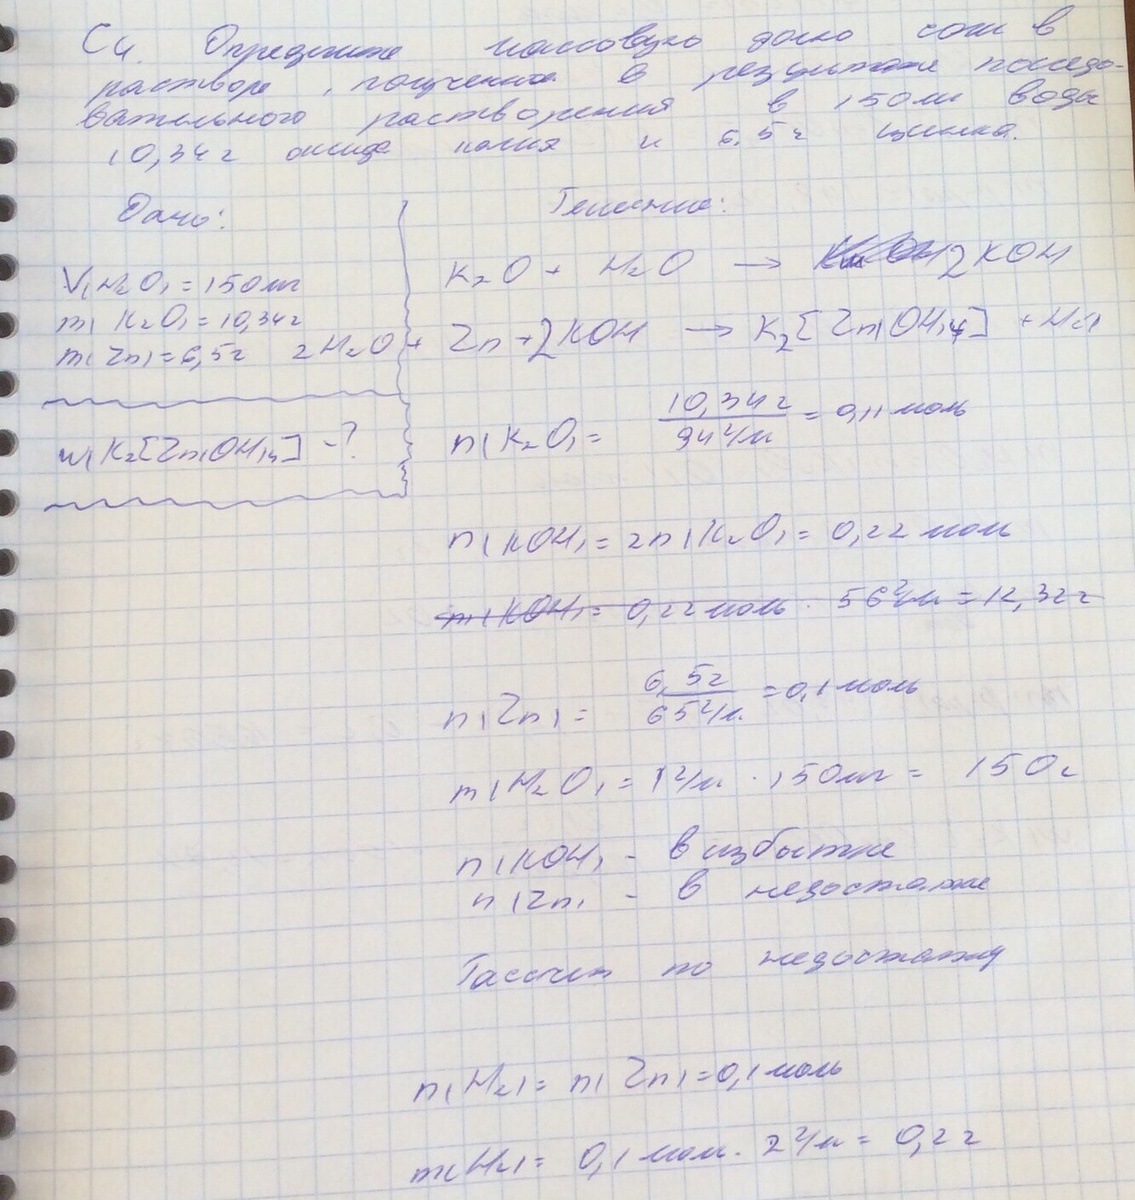 C4. Определите массовую долю соли в
растворе, полученном в результате последо-
вательного растворения в 150мл воды
10,34г оксида калия и 6,5г цинка.
Дано:
V(H₂O)=150мл
m(K₂O)=10,34г
m(Zn)=6,5г
w(K₂[Zn(OH)₄] -?
Решение:
K₂O + H₂O → 2KOH
2H₂O + Zn + 2KOH → K₂[Zn(OH)₄] + H₂↑
n(K₂O)= 10,34г/94г/м = 0,11моль
n(KOH)=2n(K₂O)=0,22моль
m(KOH)= 0,22моль · 56г/м = 12,32г
n(Zn)= 6,5г/65г/м. =0,1моль
m(H₂O)=1г/мл · 150мл = 150г
n(KOH) - в избытке
n(Zn) - в недостатке
Рассчет по недостатку
n(H₂)= n(Zn)=0,1моль
m(H₂)= 0,1моль · 2г/м = 0,2г